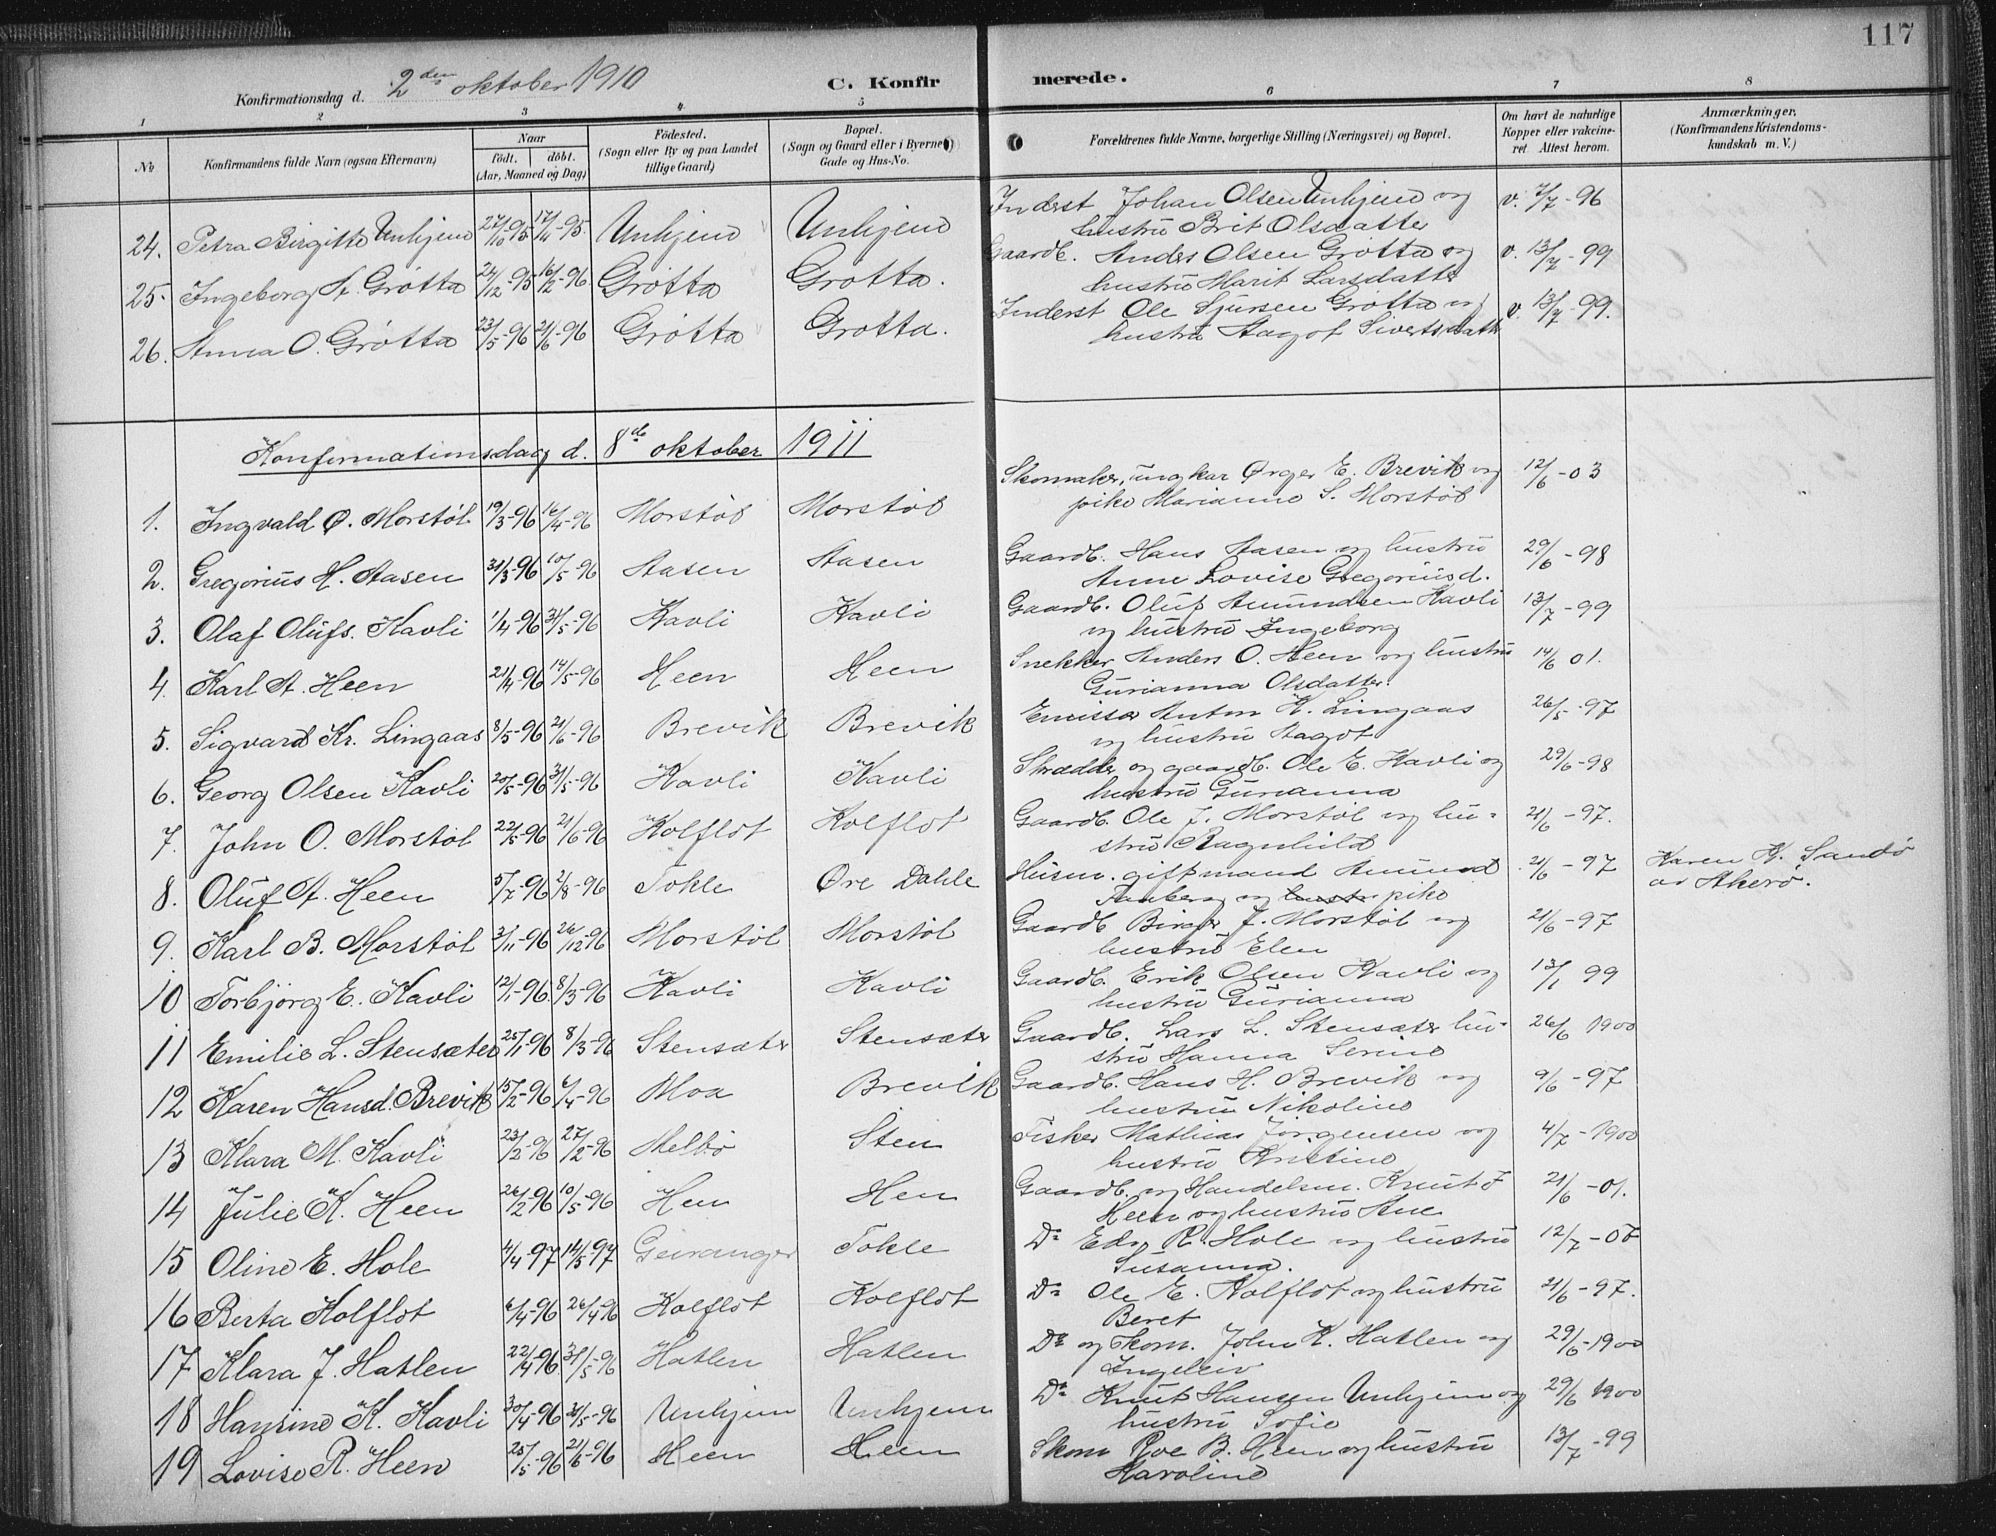 117
Konfirmationsdag d. 2den oktober 1910 C. Konfirmerede.
1 2 3 4 5 6 7 8
No. Konfirmandens fulde Navn (ogsaa Efternavn) Naar født. døbt. (Aar, Maaned og Dag) Fødested. (Sogn eller By og paa Landet tillige Gaard) Bopæl. (Sogn og Gaard eller i Byerne Gade og Hus-No.) Forældrenes fulde Navne, borgerlige Stilling (Næringsvei) og Bopæl. Om havt de naturlige Kopper eller vakcineret Attest herom. Anmærkninger. (Konfirmandens Kristendomskundskab m. V.)
24. Petra Birgitte Unhjend 27/10-95 17/11-95. Unhjend Unhjend Inderst Johan Olsen Unhjend og v. 7/7-96
hustru Brit Olsdatter
25. Ingeborg A. Grøtta 24/12-95 16/2-96 Grøtta Grøtta. Gaardb. Anders Olsen Grøtta og v. 13/7-99
hustru Marit Larsdatter
26. Anna O. Grøtta 23/5-96 21/6-96 Grøtta Grøtta. Inderst Ole Sjursen Grøtta og v. 13/7-99.
hustru Aagot Sivertsdatt
Konfirmationsdag d. 8de oktober 1911
1. Ingvald Ø. Morstøl 19/3-96 16/4-96 Morstøl Morstøl Skomaker, ungkar Ørger E. Brevik og 12/6-03
pike Marianne S. Morstøl
2. Gregorius H. Aasen 31/3-96 10/5-96 Aasen Aasen Gaardb. Hans Aasen og hustru 29/6-98
Anne Lovise Gregoriusd.
3. Olaf Olufs. Kavli 1/4-96 31/5-96 Kavli Kavli Gaardb. Oluf Amundsen Kavli 13/7-99
og hustru Ingeborg
4. Karl A. Heen 21/4-96 14/5-96 Heen Heen Snekker Anders O. Heen og hustru 14/6 01.
Gurianna Olsdatter.
5. Sigvard Kr. Lingaas 8/5-96 21/6-96 Brevik Brevik Emissær Anton K. Lingaas 26/5-97
og hustru Aagot
6. Georg Olsen Kavli 20/5-96 31/5-96 Kavli Kavli Skrædder og gaardb. Ole E. Kavli og 29/6-98
hustru Gurianna
7. John O. Morstøl 22/5-96 21/6-96 Kolfløt Kolfløt Gaardb. Ole J. Morstøl og hu- 21/6-97.
stru Ragnhild
8. Oluf A. Heen 5/7-96 2/8-96 Tokle Øre Dahle Husm. gift mand Amund 21/6-97 Karen K. Sandø
og pike av Akerø.
9. Karl B. Morstøl 3/11-96 26/12-96 Morstøl Morstøl Gaardb. Birger J. Morstøl og 21/6-97
hustru Elen
10 Torbjørg E. Kavli 12/1-96. 8/3-96 Kavli Kavli Gaardb. Erik Olsen Kavli og 13/1 99
hustru Gurianna
11 Emilie L. Stensæter 25/1-96 8/3-96 Stensæter Stensæter Gaardb. Lars L. Stensæter hu- 26/6 1900
stru Hanna Serine
12 Karen Hansd. Brevik 15/2-96 6/4-96 Moa Brevik Gaardb. Hans H. Brevik og 9/6-97
hustru Nikoline
13 Klara M. Kavli 23/2-96 27/2-96 Melbø Sten Fisker Mathias Jørgensen og 4/7-1900
hustru Kristine
14 Julie K. Heen 26/2-96 10/5-96 Hen Hen Gaardb. og Handelsm. Knut J 21/6-01.
Heen og hustru Ane
15 Oline E. Hole 4/4-97 14/5-97 Geiranger Tokle Do Edv. R. Hole og hustru 12/7-08
Susanna.
16 Berta Kolfløt 6/4-96 26/4-96 Kolfløt Kolfløt Do Ole E. Kolfløt og hustru 21/6-97.
Beret
17 Klara J. Hatlen 22/4-96. 31/5-96 Hatlen Hatlen Do og Skom. John K. Hatlen og 29/6-1900
Ingeleiv
18 Hansine K. Kavli 30/4-96 31/5-96 Unhjem Unhjem Do Knut Hansen Unhjem og 29/6 1900
hustru Sofie
19 Lovise R. Heen 25/5-96 21/6-96 Heen Heen Skom Roe B. Heen og hustru 13/7-99
Karoline